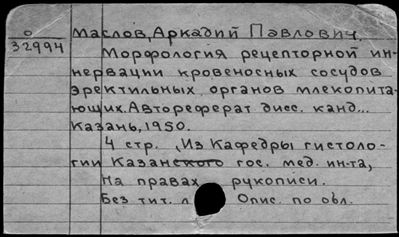 о Маслов, Аркадий Павлович.
32994 Морфология рецепторной ин-
нервации кровеносных сосудов
эректильных органов млекопита-
ющих. Автореферат дисс. канд...
Казань, 1950.
4 стр. Из Кафедры гистоло-
гии Казанского гос. мед. ин-та,
На правах рукописи.
Без тит. л Опис. по обл.